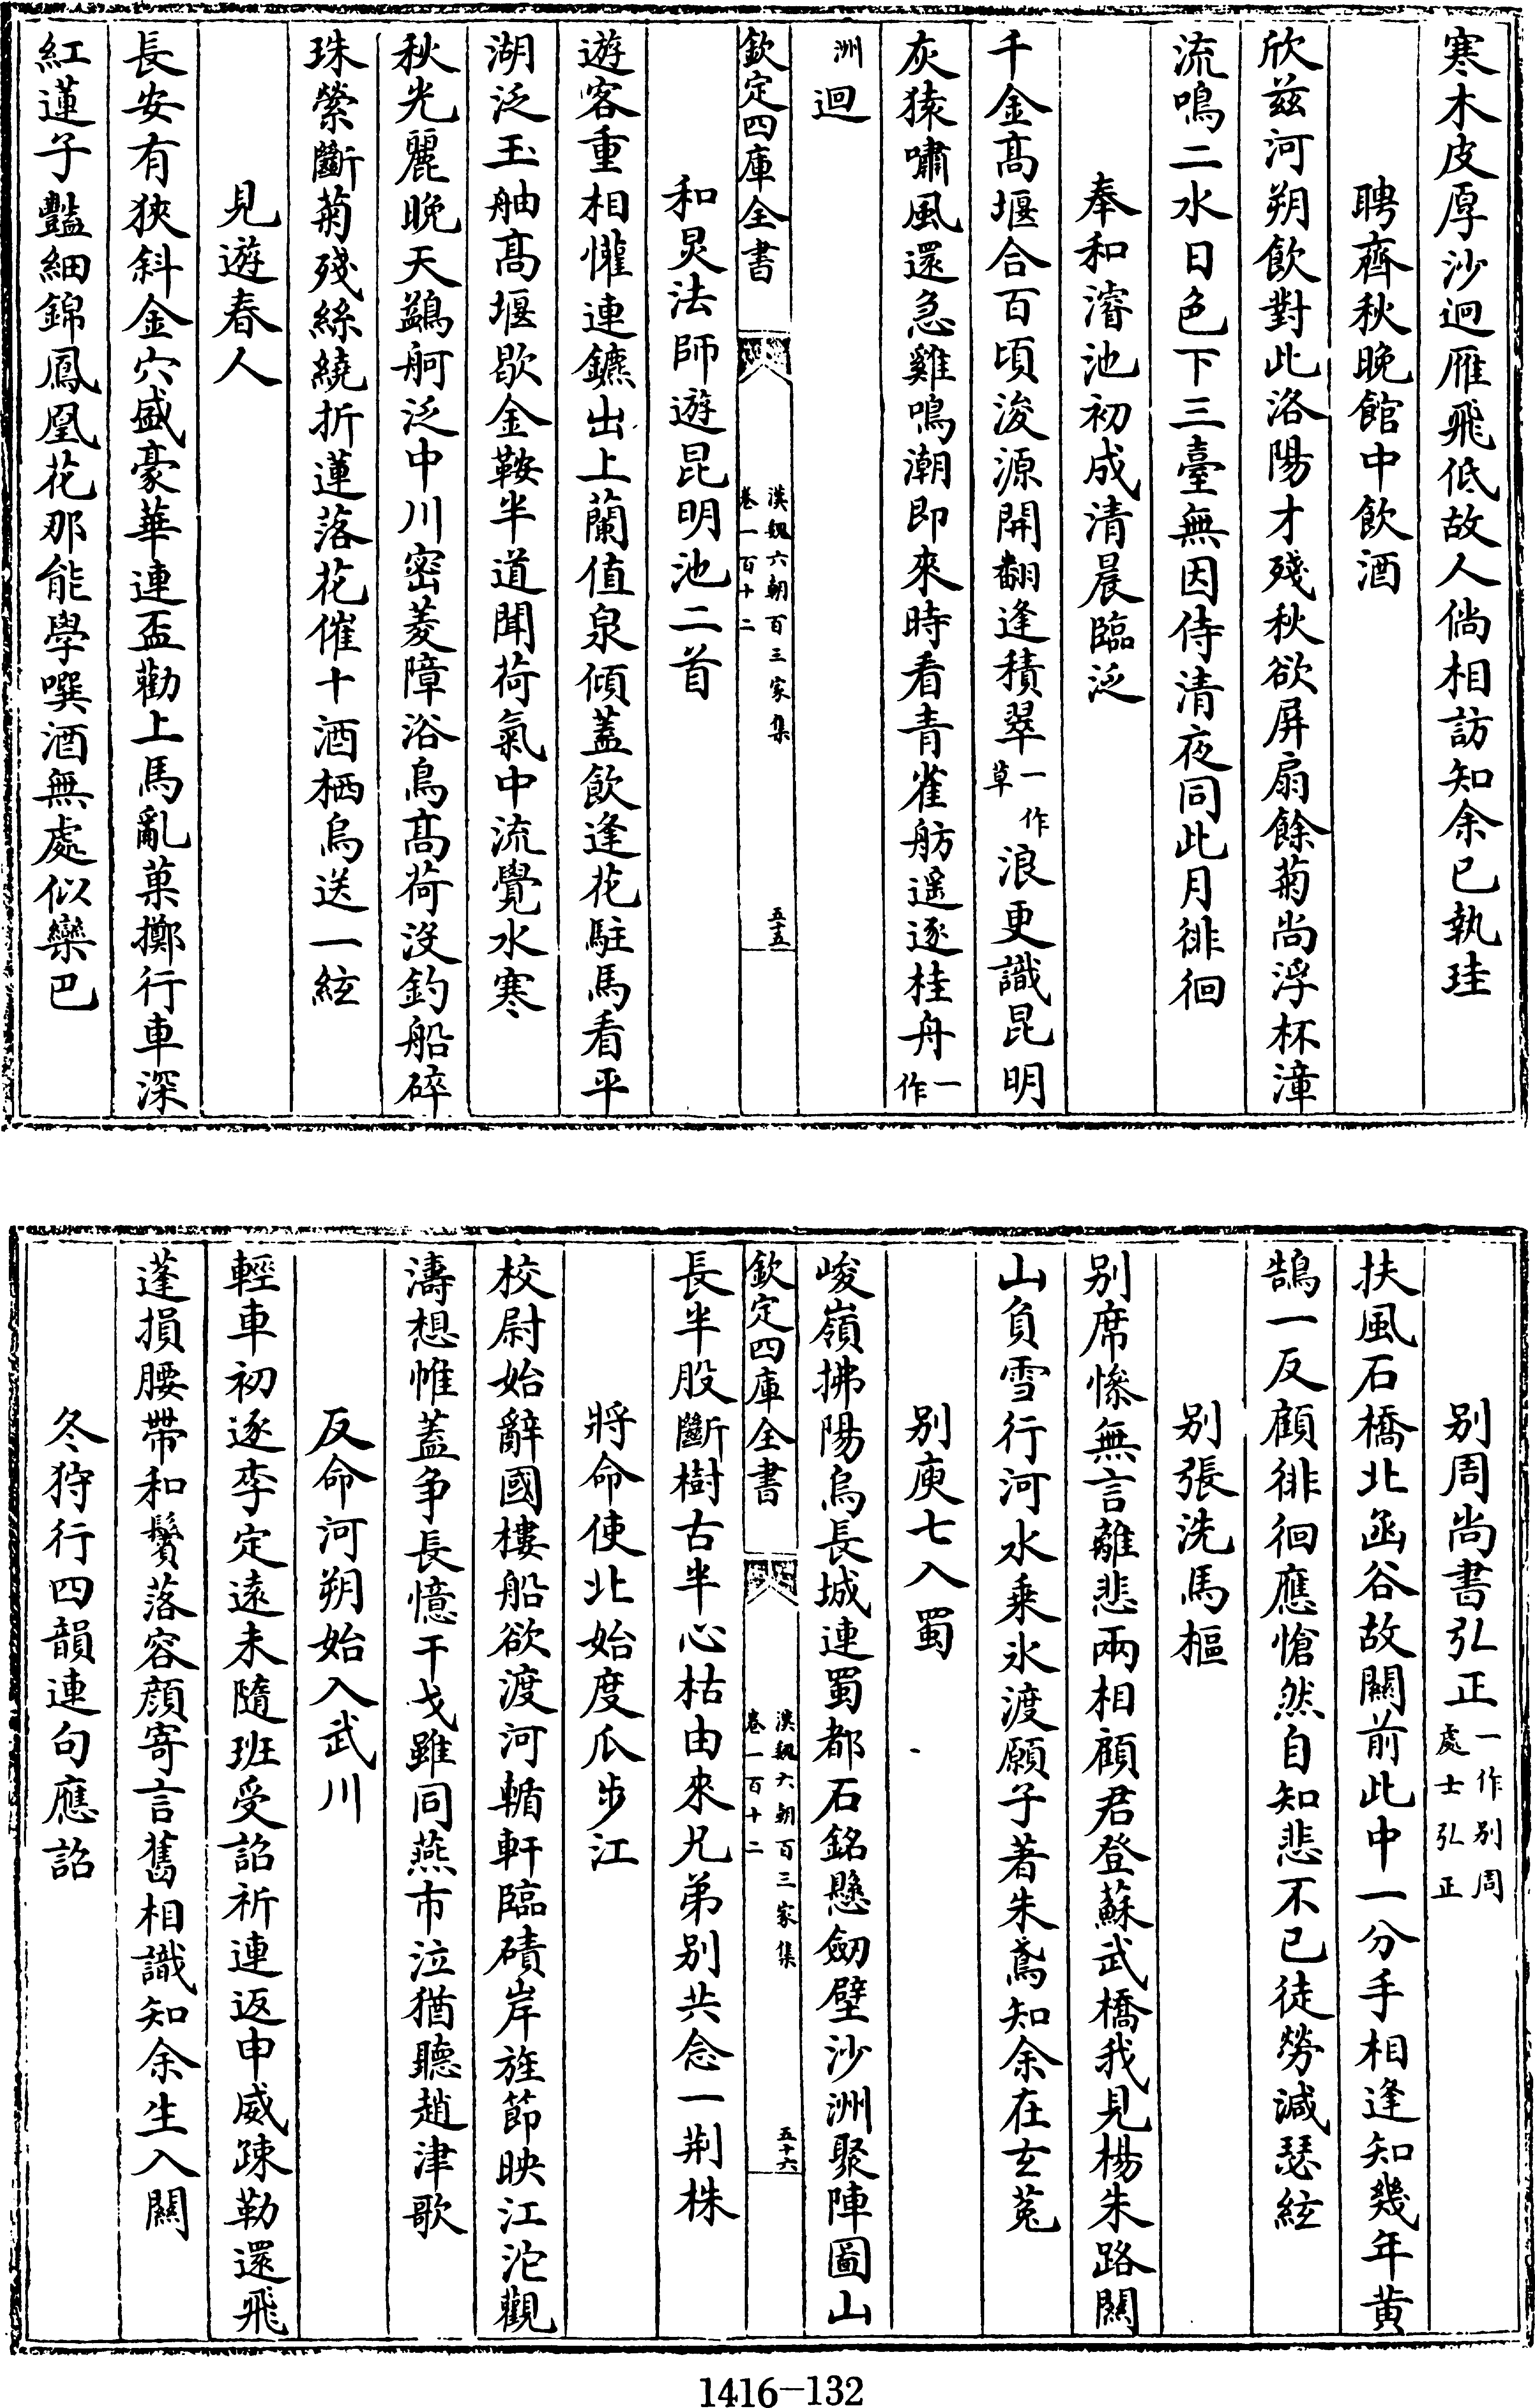 寒木皮厚沙迥雁飛低故人倘相訪知余已執珪
聘齊秋晚館中飲酒
欣兹河朔飲對此洛陽才殘秋欲屏扇餘菊尚浮杯漳
流鳴二水日色下三臺無因侍清夜同此月徘徊
奉和濬池初成清晨臨泛
千金髙堰合百頃浚源開翻逢積翠一作草浪更識昆明
灰猿嘯風還急雞鳴潮即來時看青雀舫遥逐桂舟一作
洲迴
欽定四庫全書
漢魏六朝百三家集
卷一百十二
五十五
和炅法師遊昆明池二首
遊客重相懽連鑣出上蘭值泉傾蓋飲逢花駐馬看平
湖泛玉舳髙堰歇金鞍半道聞荷氣中流覺水寒
秋光麗晚天鷁舸泛中川密菱障浴鳥髙荷沒釣船碎
珠縈斷菊殘絲繞折蓮落花催十酒栖烏送一絃
見遊春人
長安有狹斜金穴盛豪華連盃勸上馬亂菓擲行車深
紅蓮子豔細錦鳳凰花那能學噀酒無處似欒巴
别周尚書弘正一作别周處士弘正
扶風石橋北函谷故關前此中一分手相逢知幾年黄
鵠一反顧徘徊應愴然自知悲不已徒勞減瑟絃
别張洗馬樞
别席慘無言離悲兩相顧君登蘇武橋我見楊朱路關
山負雪行河水乗氷渡願子著朱鳶知余在玄菟
别庾七入蜀
峻嶺拂陽烏長城連蜀都石銘懸劒壁沙洲聚陣圖山
欽定四庫全書
漢魏六朝百三家集
卷一百十二
五十六
長半股斷樹古半心枯由來兄弟别共念一荆株
將命使北始度瓜步江
校尉始辭國樓船欲渡河輴軒臨磧岸旌節映江沱觀
濤想帷蓋爭長憶干戈雖同燕市泣猶聽趙津歌
反命河朔始入武川
輕車初逐李定遠未隨班受詔祈連返申威疎勒還飛
蓬損腰帶和鬢落容顔寄言舊相識知余生入關
冬狩行四韻連句應詔
1416-132